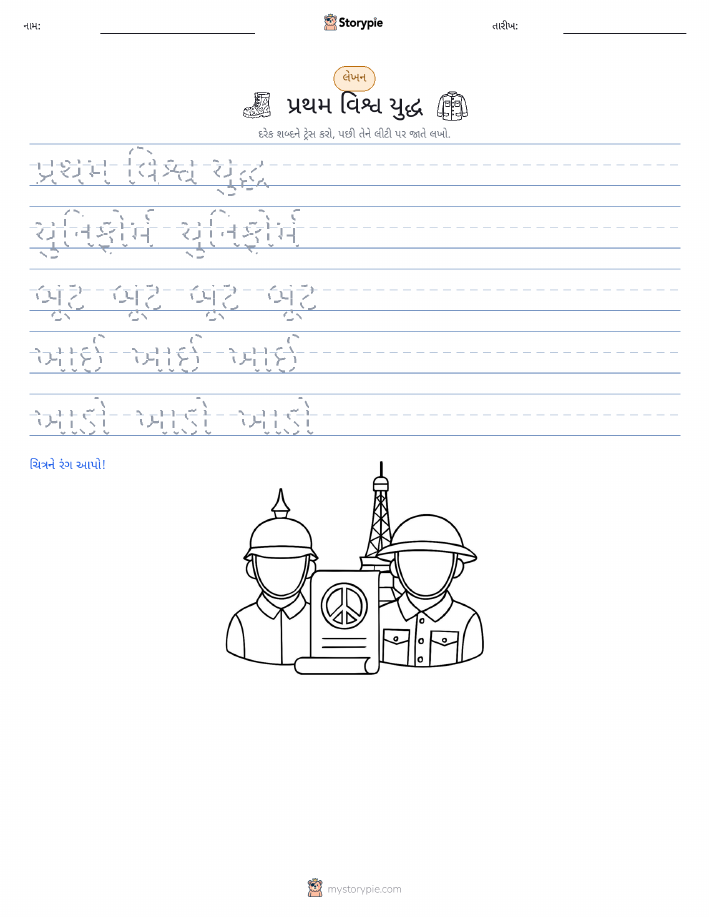 નામ:
Storypie
તારીખ:
લેખન
પ્રથમ વિશ્વ યુદ્ધ
દરેક શબ્દને ટ્રેસ કરો, પછી તેને લીટી પર જાતે લખો.
પ્રથમ વિશ્વ યુદ્ધ
યુનિફોર્મ યુનિફોર્મ
બૂટ બૂટ બૂટ બૂટ
ખાઈ ખાઈ ખાઈ
ખાડો ખાડો ખાડો
ચિત્રને રંગ આપો!
mystorypie.com